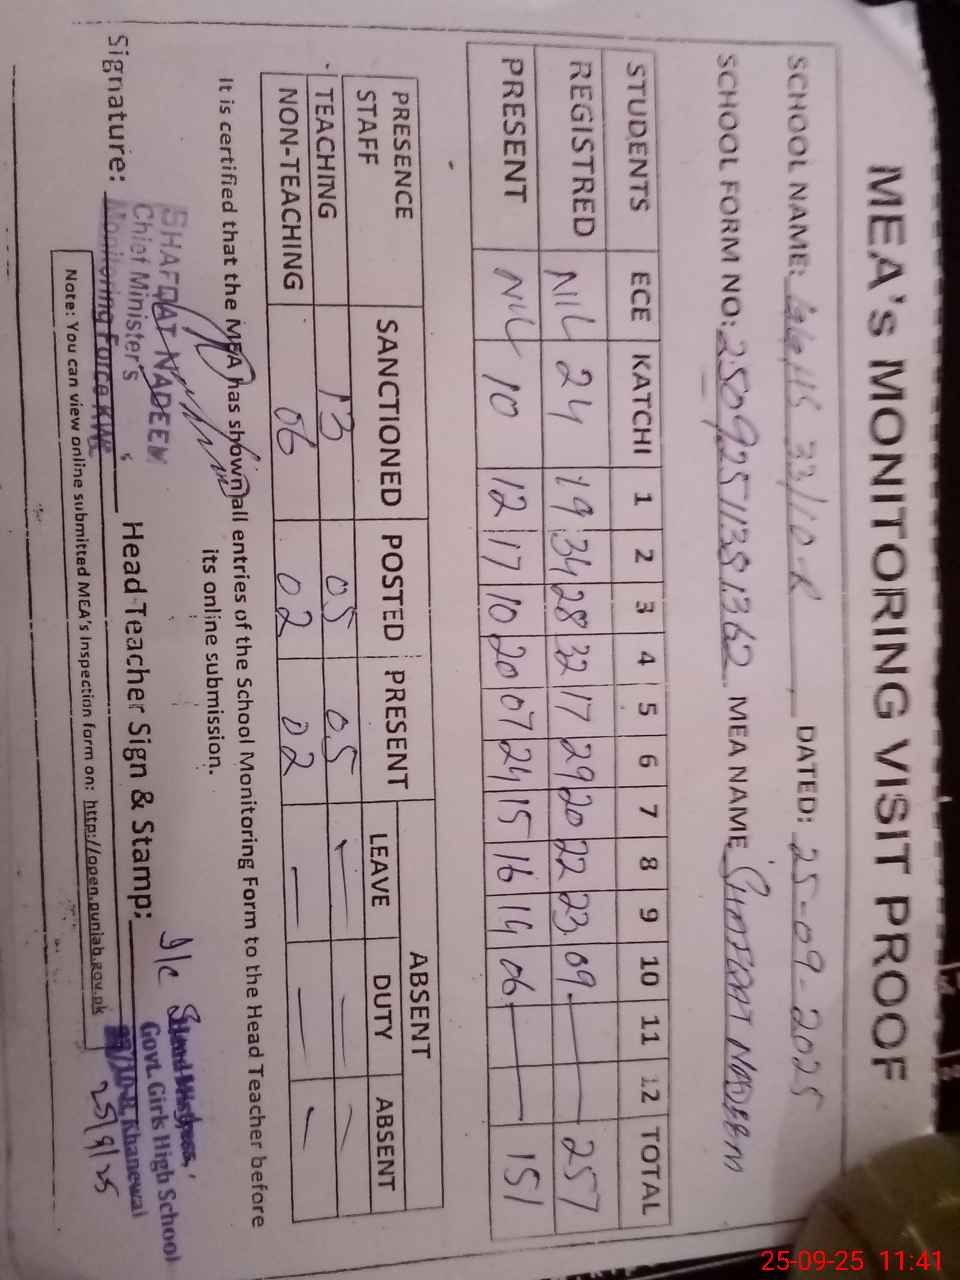 MEA's MONITORING VISIT PROOF
SCHOOL NAME: GGHS 33/10-R DATED: 25-09-2025
SCHOOL FORM NO: MEA NAME SHAFQAT NADEEM
STUDENTS ECE KATCHI 1 2 3 4 5 6 7 8 9 10 11 12 TOTAL
REGISTRED NIL 24 19 34 28 32 17 29 20 22 23 09 — — 257
PRESENT NIL 10 12 17 10 20 07 24 15 16 14 06 — — 151
PRESENCE STAFF SANCTIONED POSTED PRESENT ABSENT
LEAVE DUTY ABSENT
TEACHING 13 05 05 — — —
NON-TEACHING 06 02 02 — — —
It is certified that the MEA has shown all entries of the School Monitoring Form to the Head Teacher before
its online submission.
SHAFQAT NADEEM
Chief Minister's
Monitoring Force KWL
Signature: Head Teacher Sign & Stamp:
I/c
Govt. Girls High School
33/10-R, Khanewal
25/9/25
Note: You can view online submitted MEA's Inspection form on: http://open.punjab.gov.pk
25-09-25 11:41